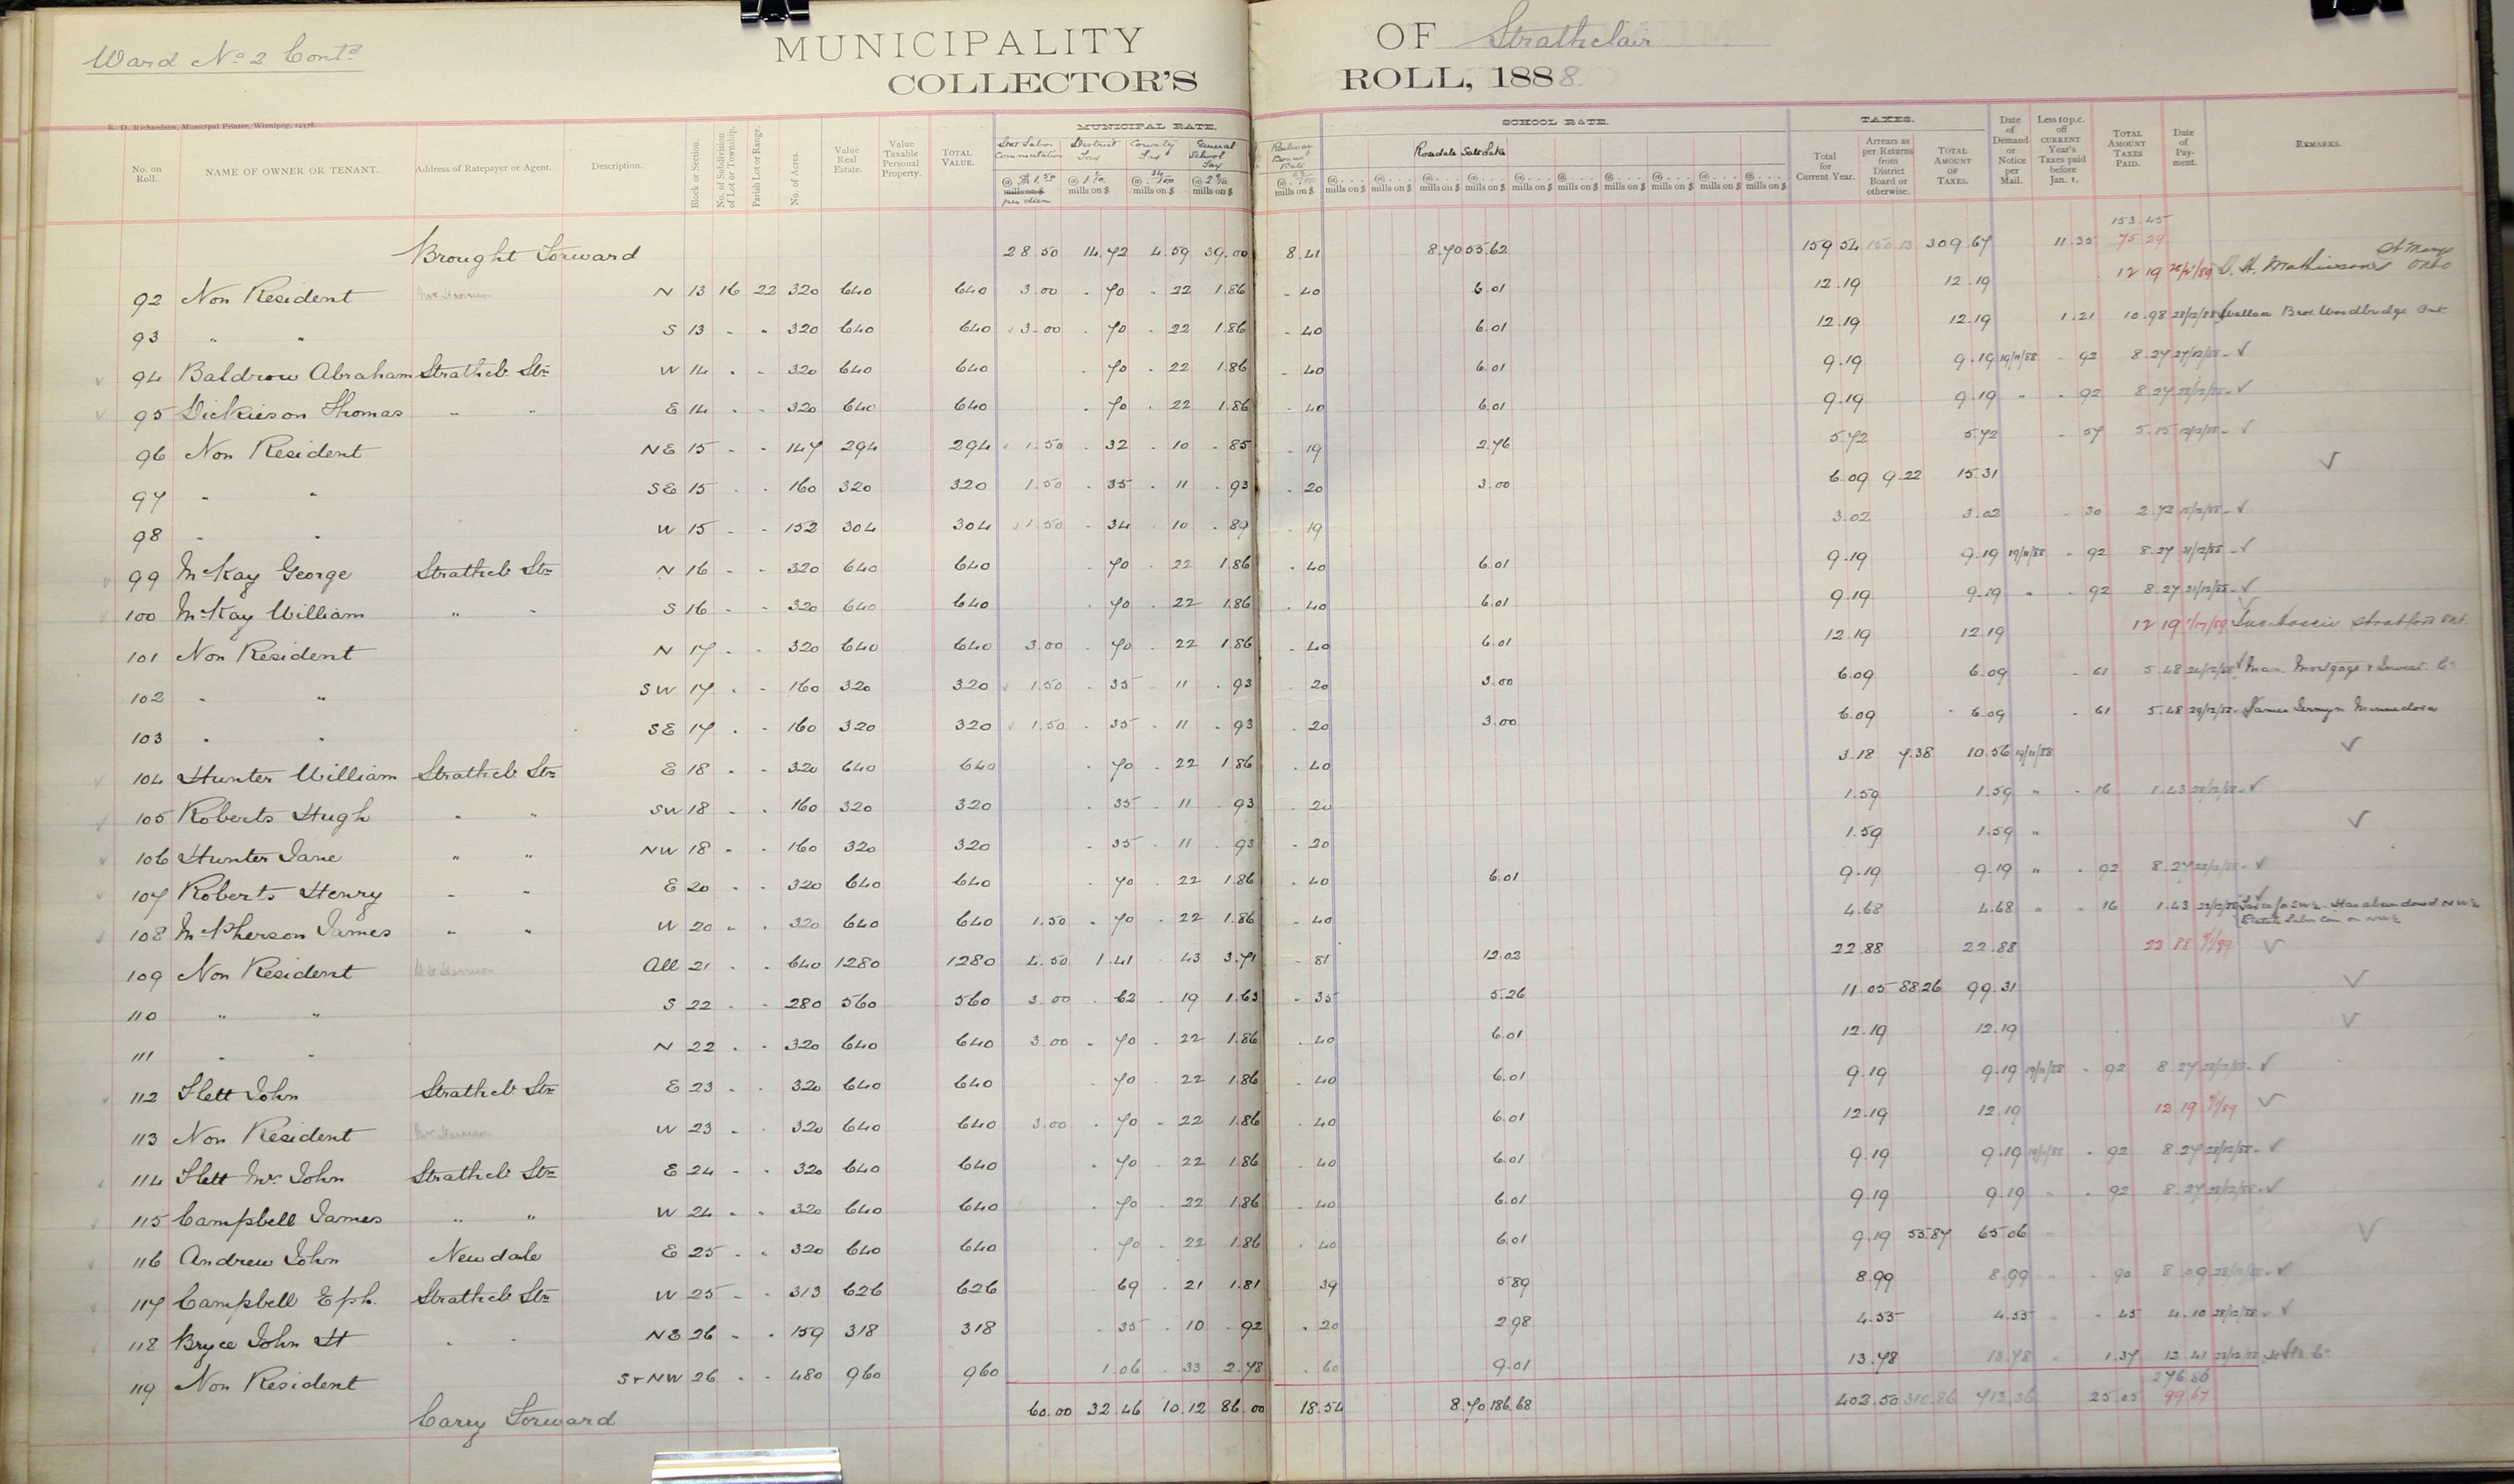 Ward No 2 Contd
MUNICIPALITY OF Strathclair
COLLECTOR'S ROLL, 1888.
R. D. Richardson, Municipal Printer, Winnipeg.
MUNICIPAL RATE. SCHOOL RATE. TAXES.
No. on Roll. NAME OF OWNER OR TENANT. Address of Ratepayer or Agent. Description. Block or Section. No. of Subdivision of Lot or Township. Parish Lot or Range. No. of Acres. Value Real Estate. Value Taxable Personal Property. TOTAL VALUE. Stat Labor Commutation @ 1.50 mills on $ per diem District Tax @ mills on $ County Tax @ mills on $ General School Tax @ mills on $ Railway Bonus Rate @ mills on $ Rosedale Salt Lake Total for Current Year. Arrears as per Returns from District Board or otherwise. TOTAL AMOUNT OF TAXES. Date of Demand or Notice per Mail. Less 10 p.c. off CURRENT Year's Taxes paid before Jan. 1. TOTAL AMOUNT TAXES PAID. Date of Payment. REMARKS.
153 45
Brought Forward 28.50 14.72 4.59 39.00 8.41 8.70 55.62 159 54 150.13 309.67 11.35 75 29
92 Non Resident N 13 16 22 320 640 640 3.00 .70 .22 1.86 .40 6.01 12.19 12.19 12 19 D. H. Mathieson St Marys Onto
93 " " S 13 " " 320 640 640 3.00 .70 .22 1.86 .40 6.01 12.19 12.19 1.21 10.98 28/12/88 Wallace Bros Woodbridge Ont.
94 Baldrow Abraham Strathcl. Stn W 14 " " 320 640 640 .70 .22 1.86 .40 6.01 9.19 9.19 19/11/88 .92 8.27 27/12/88 ✓
95 Dickieson Thomas " " E 14 " " 320 640 640 .70 .22 1.86 .40 6.01 9.19 9.19 " .92 8.27 28/12/88 ✓
96 Non Resident NE 15 " " 147 294 294 1.50 .32 .10 .85 .19 2.76 5.72 5.72 .57 5.15 ✓
97 " " SE 15 " " 160 320 320 1.50 .35 .11 .93 .20 3.00 6.09 9.22 15.31 ✓
98 " " W 15 " " 152 304 304 1.50 .34 .10 .89 .19 3.02 3.02 .30 2.72 ✓
99 McKay George Strathcl. Stn N 16 " " 320 640 640 .70 .22 1.86 .40 6.01 9.19 9.19 19/11/88 .92 8.27 21/12/88 ✓
100 McKay William " " S 16 " " 320 640 640 .70 .22 1.86 .40 6.01 9.19 9.19 " .92 8.27 21/12/88 ✓
101 Non Resident N 17 " " 320 640 640 3.00 .70 .22 1.86 .40 6.01 12.19 12.19 12 19 Stratford Ont.
102 " " SW 17 " " 160 320 320 1.50 .35 .11 .93 .20 3.00 6.09 6.09 .61 5.48 ✓ Man. Mortgage & Invest. Co
103 " " SE 17 " " 160 320 320 1.50 .35 .11 .93 .20 3.00 6.09 6.09 .61 5.48 29/12/88 James Jermyn Minnedosa
104 Hunter William Strathcl. Stn E 18 " " 320 640 640 .70 .22 1.86 .40 3.18 7.38 10.56 19/11/88 ✓
105 Roberts Hugh " " SW 18 " " 160 320 320 .35 .11 .93 .20 1.59 1.59 " .16 1.43 ✓
106 Hunter Jane " " NW 18 " " 160 320 320 .35 .11 .93 .20 1.59 1.59 " ✓
107 Roberts Henry " " E 20 " " 320 640 640 .70 .22 1.86 .40 6.01 9.19 9.19 " .92 8.27 ✓
108 McPherson James " " W 20 " " 320 640 640 1.50 .70 .22 1.86 .40 4.68 4.68 " .16 1.43 Has abandoned NW¼
Statute Labor Com on NW¼
109 Non Resident All 21 " " 640 1280 1280 4.50 1.41 .43 3.71 .81 12.02 22.88 22.88 22 88 ✓
110 " " S 22 " " 280 560 560 3.00 .62 .19 1.63 .35 5.26 11.05 88 26 99.31 ✓
111 " " N 22 " " 320 640 640 3.00 .70 .22 1.86 .40 6.01 12.19 12.19 ✓
112 Flett John Strathcl. Stn E 23 " " 320 640 640 .70 .22 1.86 .40 6.01 9.19 9.19 19/11/88 .92 8.27 28/12/88 ✓
113 Non Resident W 23 " " 320 640 640 3.00 .70 .22 1.86 .40 6.01 12.19 12.19 12.19 ✓
114 Flett Mrs John Strathcl. Stn E 24 " " 320 640 640 .70 .22 1.86 .40 6.01 9.19 9.19 19/11/88 .92 8.27 28/12/88 ✓
115 Campbell James " " W 24 " " 320 640 640 .70 .22 1.86 .40 6.01 9.19 9.19 " .92 8.27 28/12/88 ✓
116 Andrew John Newdale E 25 " " 320 640 640 .70 .22 1.86 .40 6.01 9.19 55.87 65.06 " ✓
117 Campbell Eph. Strathcl. Stn W 25 " " 313 626 626 69 .21 1.81 39 5 89 8.99 8.99 " .90 8.09 28/12/88 ✓
118 Bryce John St " " NE 26 " " 159 318 318 .35 .10 .92 .20 2.98 4.55 4.55 " .45 4.10 28/12/88 ✓
119 Non Resident S & NW 26 " " 480 960 960 1.06 .33 2.78 .60 9.01 13.78 13.78 " 1.37 12 41
276.86
Carry Forward 60.00 32.46 10.12 86.00 18.54 8.70 186.68 402.50 310.86 713.36 25.05 99.67